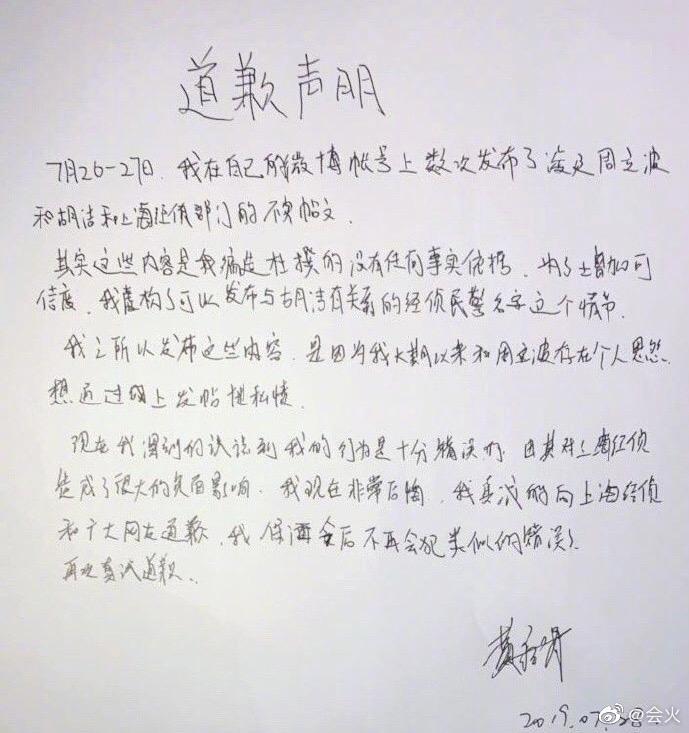 道歉声明
7月26-27日,我在自己的微博帐号上数次发布了涉及周立波
和胡洁和上海经侦部门的不实帖文.
其实这些内容是我编造杜撰的没有任何事实依据,为了增加可
信度,我虚构了可以发布与胡洁有关系的经侦民警名字这个情节.
我之所以发布这些内容,是因为我长期以来和周立波存在个人恩怨.
想通过网上发帖泄私愤.
现在我深刻的认识到我的行为是十分错误的,因其对上海经侦
造成了很大的负面影响.我现在非常后悔,我真诚的向上海经侦
和广大网友道歉,我保证今后不再会犯类似的错误!
再次真诚道歉.
2019.07.28
@会火